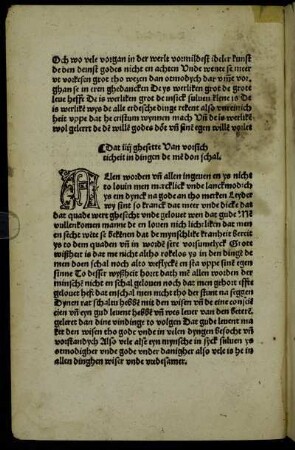 Och wo vele vorgan in der werlt vormiddest ideler kunst
de den deinst godes nicht en achten Vnde wente se meer
vt vorkesen grot tho wezen dan otmodych dar vm̄e vor,
ghan se in eren ghedancken De ys werliken grot de grote
leue hefft De is werliken grot de in sick suluen klene is De
is werlikē wys de alle erdesche dinge erkent also vnreinich
heit vppe dat he cristum wynnen mach Vn̄ de is werlikē
wol gelert de dē willē godes dot vn̄ sinē egen willē vorlet
Dat iiij ghesette Van vorsich
ticheit in dingen de mē don schal.
Allen worden vn̄ allen ingeuen en ys nicht
to louen men marcklick vnde lanckmodich
ys ein dynck na gode an tho merken Leyder
wy sint so kranck dat meer vnde dicke das
dat quade wert ghesecht vnde gelouet wen dat gude Mē
vullenkomen manne de en louen nich lichtliken dat men
en secht wēte se bekennē dat de mynschlike kranheit bereit
ys to dem quaden vn̄ in wordē sere vorsumelyck Grote
wißheit is dat me nicht alto rokelos ys in den dingē de
men doen schal noch alto westycke en sta vppe sinē egen
sinne To desser wyßheit hort dath mē allen worden der
minschē nicht en schal gelouen noch dat men gehort efft
gelouet heft dat en schal men nicht tho der stunt na seggen
Dynen rat schaltu hebbē mit den wisen vn̄ de eine consciē
cien vn̄ eyn gud leuent hebbē vn̄ wes leuer van den beterē
geleret dan dine vindinge to volgen Dat gude leuent ma
ket den wisen tho gode vnde in velen dyngen besocht vn̄
vorstandych Also vele alse eyn mynsche in syck suluen ys
otmodigher vnde gode vnder danigher also vele is he in
allen dinghen wiser vnde vredesamer.